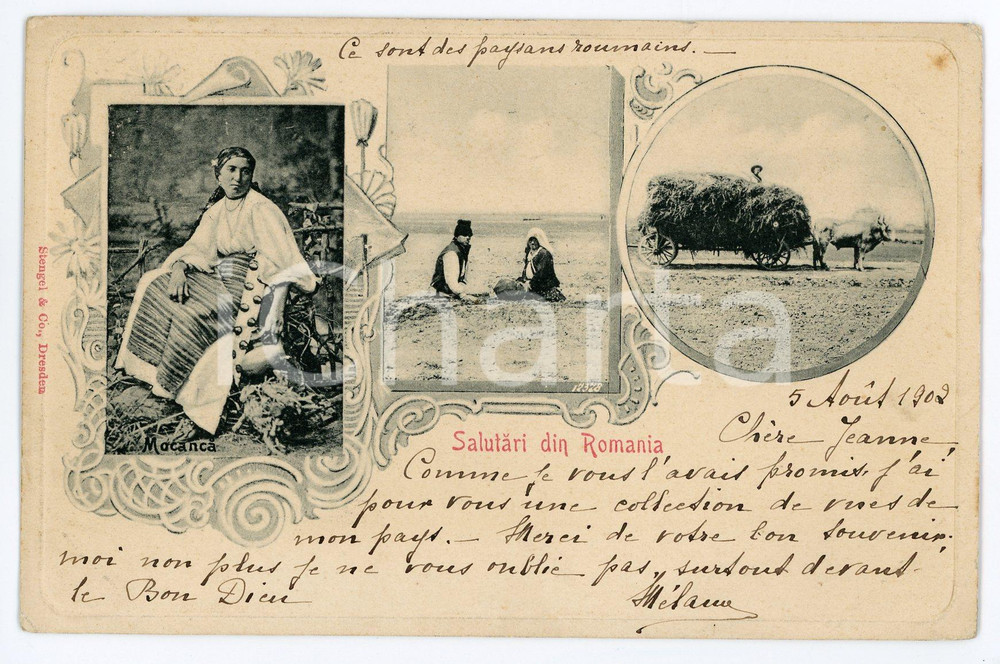 Ce sont des paysans roumains. —
Stengel & Co., Dresden
Mocanca
12373
Charta
Salutări din Romania
5 Août 1902
Chère Jeanne
Comme je vous l'avais promis, j'ai
pour vous une collection de vues de
mon pays. — Merci de votre bon souvenir.
moi non plus je ne vous oublie pas, surtout devant
le Bon Dieu
Mélanie